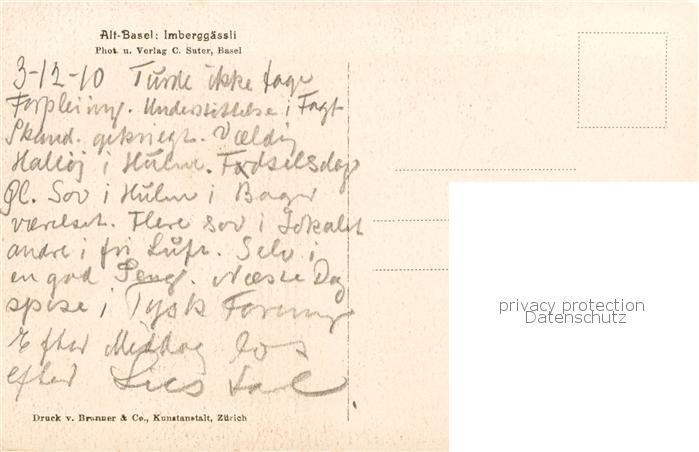 Alt-Basel: Imberggässli
Phot. u. Verlag C. Suter, Basel
3-12-10 Turde ikke tage
Forpleining. Understøttelse i Fagf
Skand. Vældig
Halløj i Hulm. Fødselsdag
Gl. Sov i Hulm i Bager
værelset. Flere sov i Lokalet
andre i fri Luft. Selv i
en god Seng. Næste Dag
spise i Tysk Forening
Efter Middag los
efter
Druck v. Brunner & Co., Kunstanstalt, Zürich
privacy protection
Datenschutz